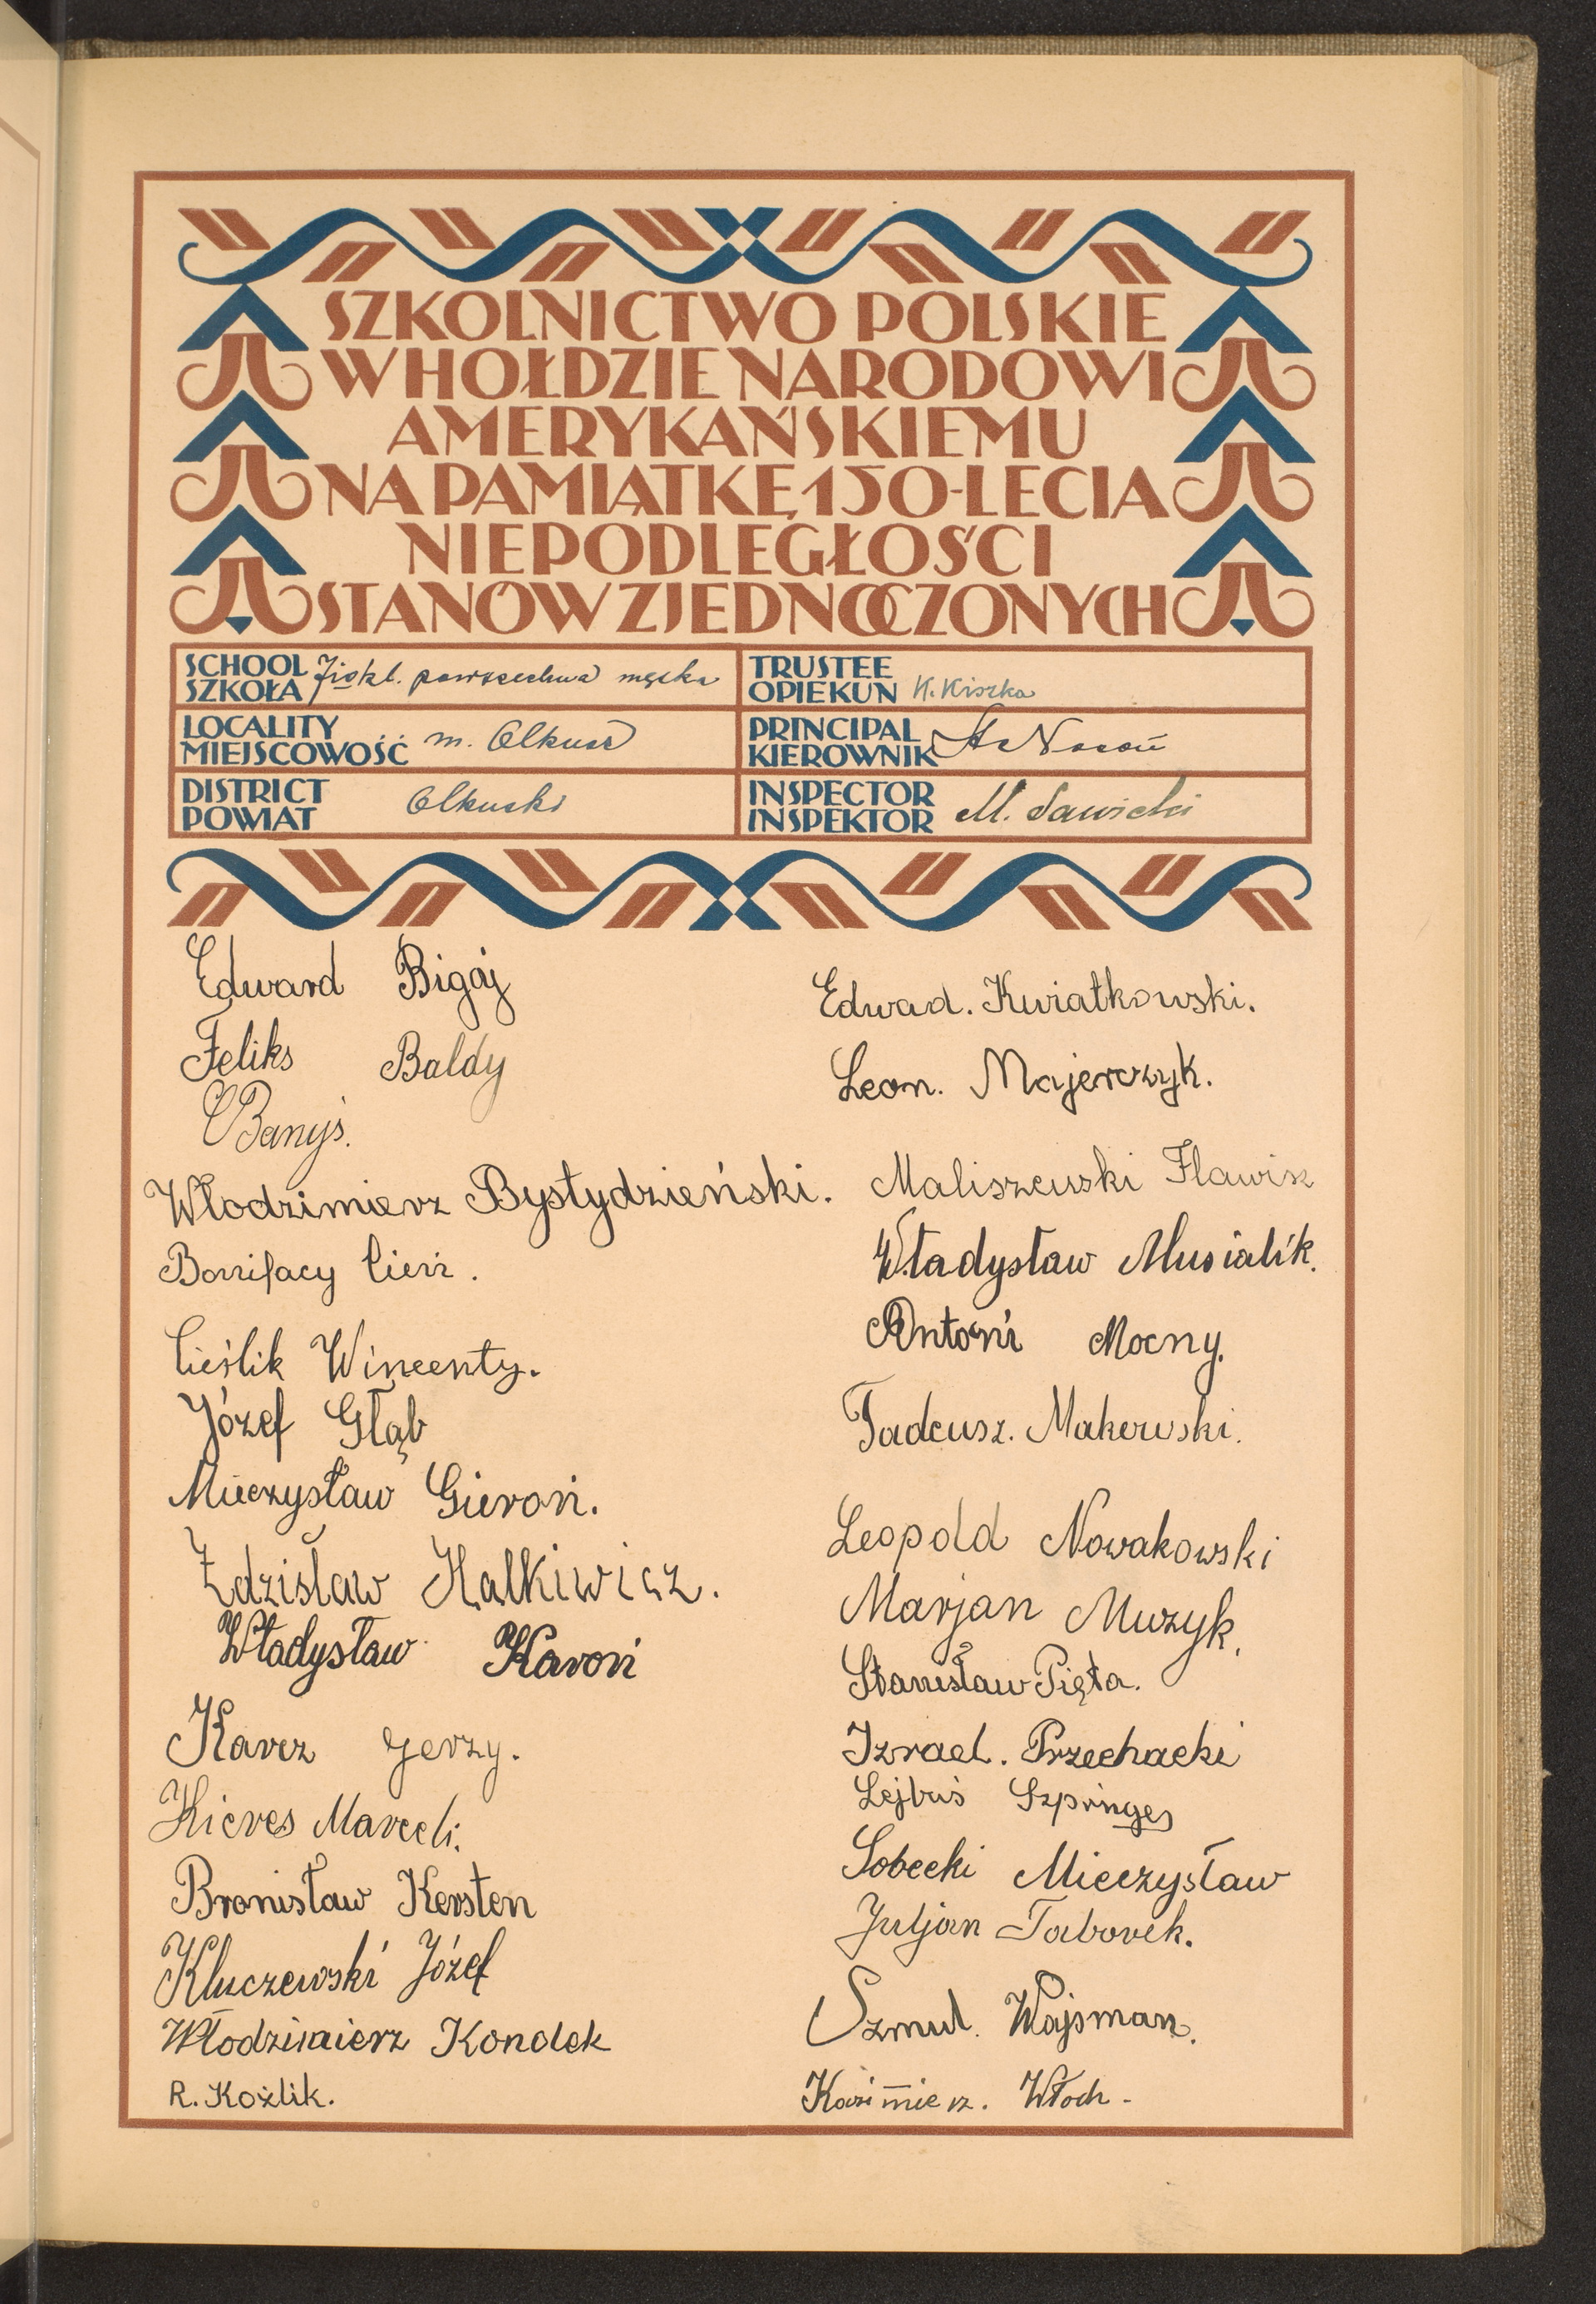 SZKOLNICTWO POLSKIE
W HOŁDZIE NARODOWI
AMERYKAŃSKIEMU
NA PAMIĄTKĘ 150-LECIA
NIEPODLEGŁOŚCI
STANÓW ZJEDNOCZONYCH
SCHOOL
SZKOŁA 7iokl. powszechna męska
TRUSTEE
OPIEKUN K. Kiszka
LOCALITY
MIEJSCOWOŚĆ m. Olkusz
PRINCIPAL
KIEROWNIK Nocoń
DISTRICT
POWIAT Olkuski
INSPECTOR
INSPEKTOR M. Sawicki
Edward Bigaj
Feliks Baldy
Banyś.
Włodzimierz Bystydzieński.
Bonifacy Cień.
Cieślik Wincenty.
Józef Głąb
Mieczysław Gieroń.
Zdzisław Halkiwicz.
Władysław Karoń
Karcz Jerzy.
Kieres Marceli.
Bronisław Kersten
Kluczewski Józef
Włodzimierz Kondek
R. Koźlik.
Edwad. Kwiatkowski.
Leon. Majerczyk.
Maliszewski Flawisz
Władysław Musialik.
Antoni Mocny.
Tadeusz. Makowski.
Leopold Nowakowski
Marjan Muzyk.
Stanisław Pięta.
Izrael. Przechacki
Lejbuś Szpringer
Sobecki Mieczysław
Juljan Taborek.
Szmul. Wajsman.
Kazimierz. Włoch.